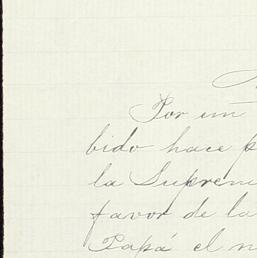 Por un
bido hace p
la Suprem
favor de la
Papá el n